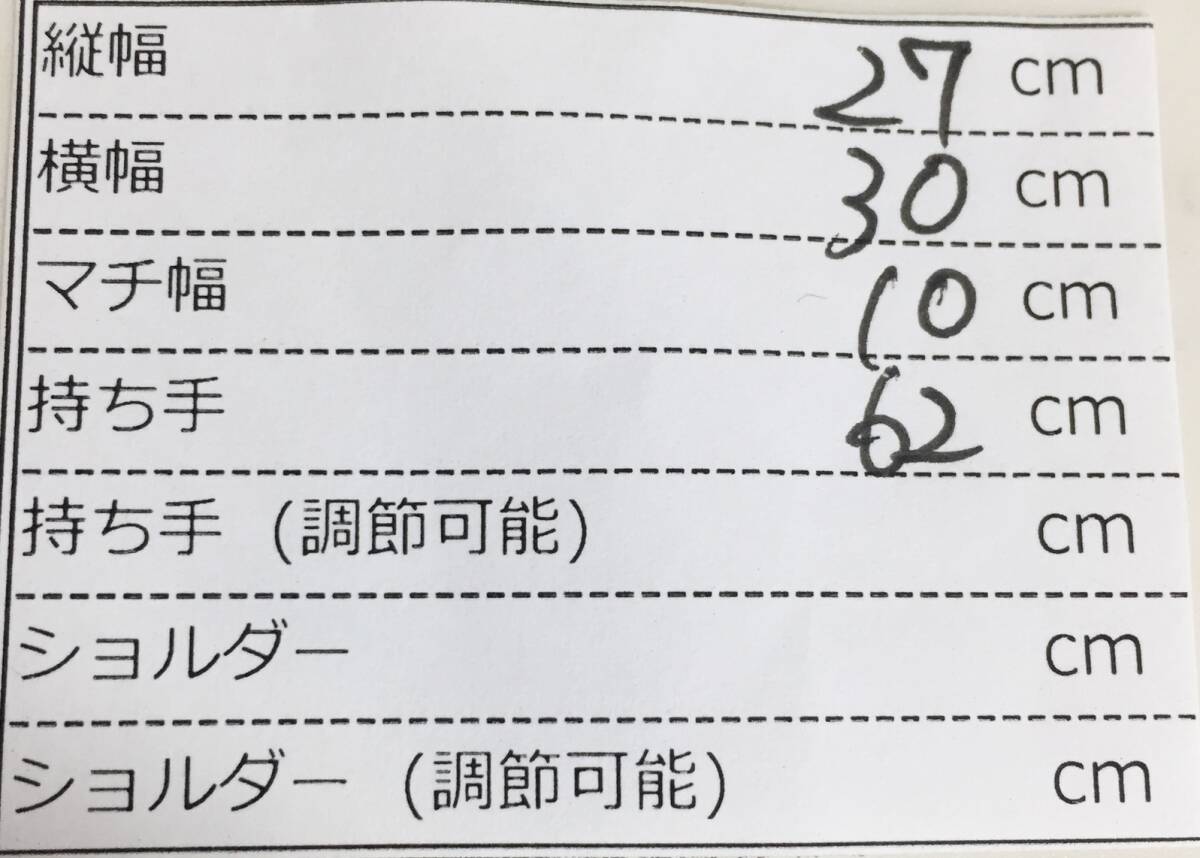 縦幅 27 cm
横幅 30 cm
マチ幅 10 cm
持ち手 62 cm
持ち手 (調節可能) cm
ショルダー cm
ショルダー (調節可能) cm